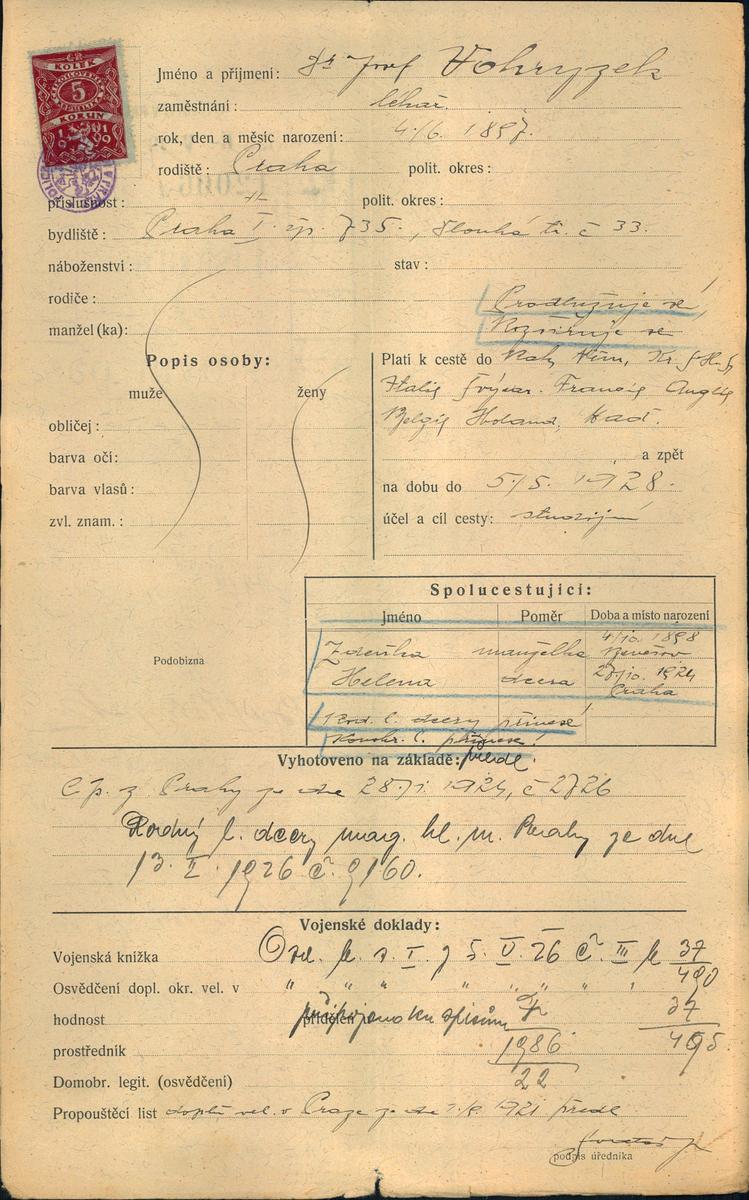 KOLEK
5
KORUN
Jméno a příjmení: Dr Josef Vohryzek
zaměstnání: lékař.
rok, den a měsíc narození: 4./6. 1897.
rodiště: Praha polit. okres:
příslušnost: polit. okres:
bydliště: Praha I. čp. 735., Dlouhá tř. č 33.
náboženství: stav:
rodiče: Prodlužuje se,
manžel (ka): Rozšiřuje se
Popis osoby:
muže ženy
obličej:
barva očí:
barva vlasů:
zvl. znam.:
Platí k cestě do Rak, Něm,
Italie Švýcar. Francie Anglie
Belgie Holand,
a zpět
na dobu do 5./5. 1928.
účel a cíl cesty: studijní
Podobizna
Spolucestující:
Jméno Poměr Doba a místo narození
Zdeňka manželka 4/10. 1898
Helena dcera 1924 Praha
Rod. l. dcery přinese
přinese!
Vyhotoveno na základě:
C. p. z Prahy ze dne 28./1. 1924, č 2726
Rodný l. dcery mag. hl. m. Prahy ze dne
13. II. 1926 č. 9160.
Vojenské doklady:
Vojenská knížka I. 5. V. 26 č. III 37/490
Osvědčení dopl. okr. vel. v " " " " " "
hodnost přidělen připojeno ku spisům 37/495
prostředník 1986/22
Domobr. legit. (osvědčení)
Propouštěcí list dopl. vel. v Praze ze dne 1921 předl
podpis úředníka